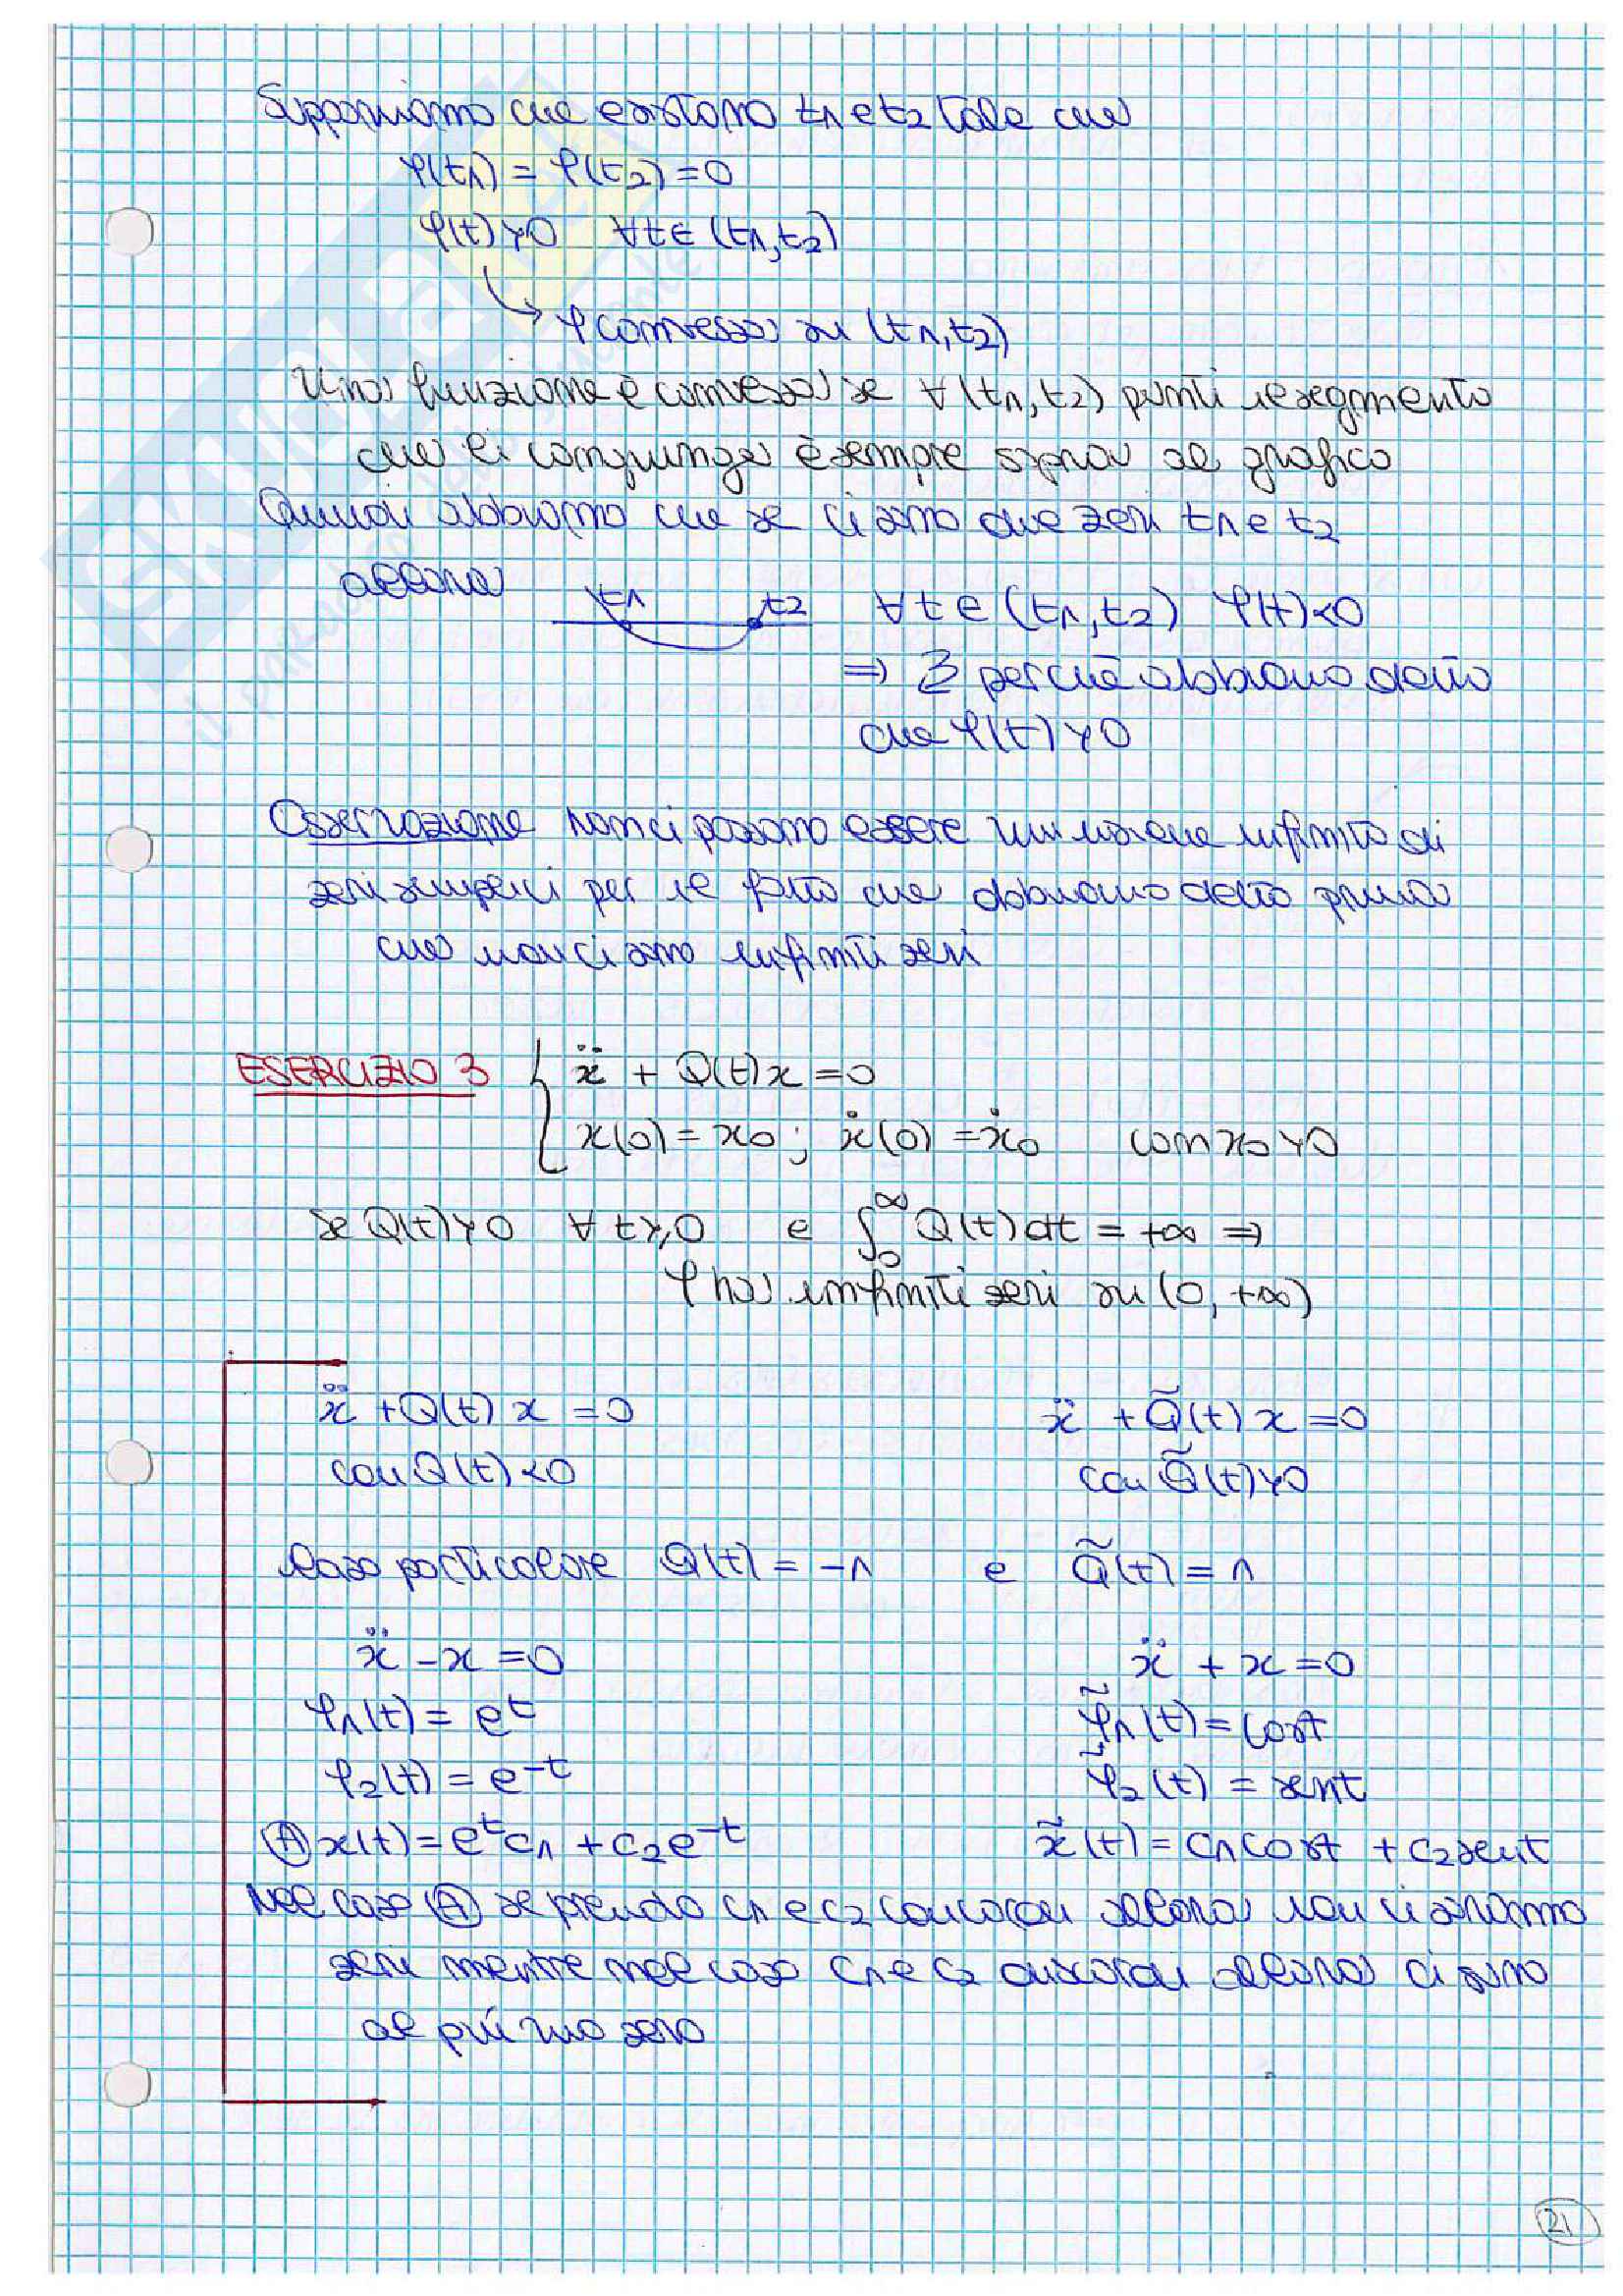 Supponiamo che esistono t1 e t2 tale che
φ(t1) = φ(t2) = 0
φ(t) > 0 ∀ t ∈ (t1, t2)
↳ φ convessa su (t1, t2)
Una funzione è convessa se ∀ (t1, t2) punti il segmento
che li congiunge è sempre sopra al grafico
Quindi abbiamo che se ci sono due zeri t1 e t2
allora t1 t2 ∀ t ∈ (t1, t2) φ(t) < 0
⇒ perché abbiamo detto
che φ(t) > 0
Osservazione non ci possono essere un'infinità di
zeri semplici per il fatto che abbiamo detto prima
che non ci sono infiniti zeri
ESERCIZIO 3 { ẍ + Q(t)x = 0
x(0) = x0 ; ẋ(0) = ẋ0 con x0 > 0
se Q(t) > 0 ∀ t ≥ 0 e ∫₀^∞ Q(t) dt = +∞ ⇒
φ ha infiniti zeri su (0, +∞)
ẍ + Q(t) x = 0 ẍ + Q̃(t) x = 0
con Q(t) < 0 con Q̃(t) > 0
Caso particolare Q(t) = -1 e Q̃(t) = 1
ẍ - x = 0 ẍ + x = 0
φ1(t) = e^t φ̃1(t) = cost
φ2(t) = e^-t φ̃2(t) = sent
Ⓐ x(t) = e^t c1 + c2 e^-t x̃(t) = c1 cost + c2 sent
Nel caso Ⓐ se prendo c1 e c2 concordi allora non ci saranno
zeri mentre nel caso c1 e c2 discordi allora ci sono
al più uno zero
21